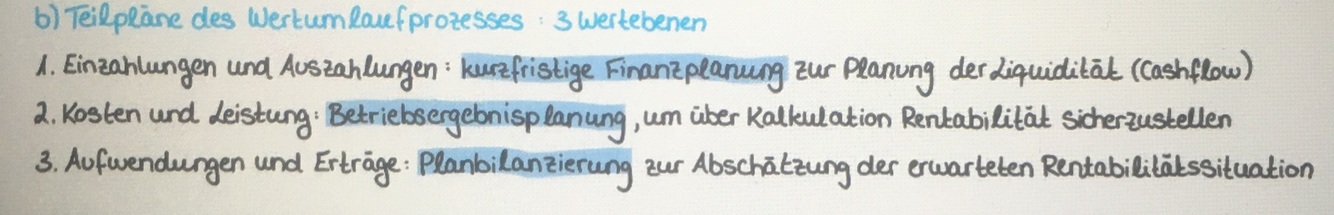 b) Teilpläne des Wertumlaufprozesses : 3 Wertebenen
1. Einzahlungen und Auszahlungen : kurzfristige Finanzplanung zur Planung der Liquidität (Cashflow)
2. Kosten und Leistung : Betriebsergebnisplanung, um über Kalkulation Rentabilität sicherzustellen
3. Aufwendungen und Erträge : Planbilanzierung zur Abschätzung der erwarteten Rentabilitätssituation